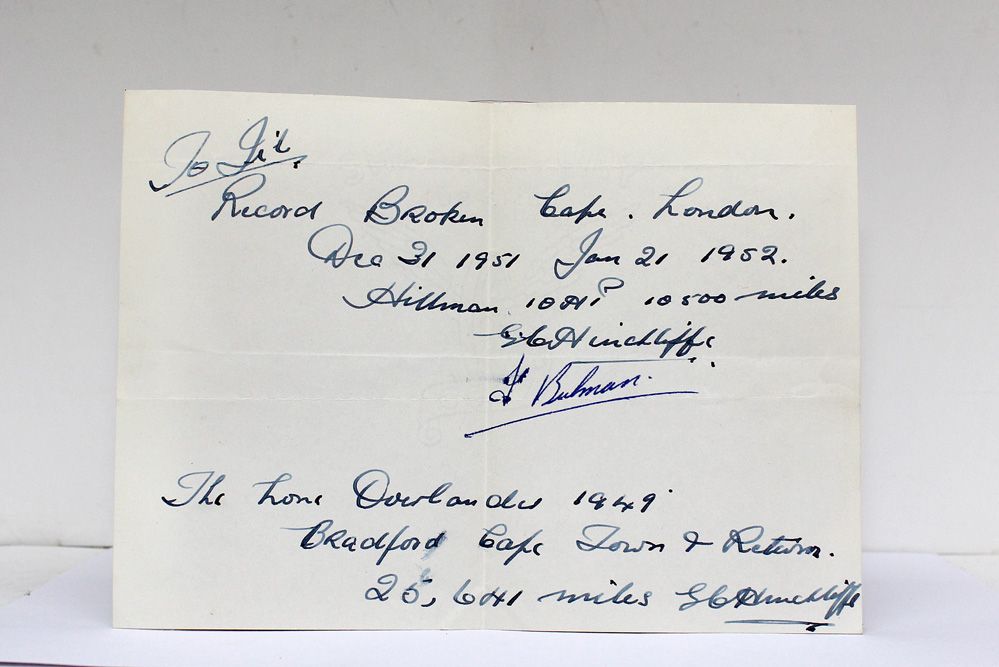 To Jil.
Record Broken Cape. London.
Dec 31 1951 Jan 21 1952.
Hillman. 10 HP 10500 miles
G C Hinchliffe.
Bulman.
The Lone Overlander 1949
Bradford Cape Town & Return.
25,641 miles G C Hinchliffe